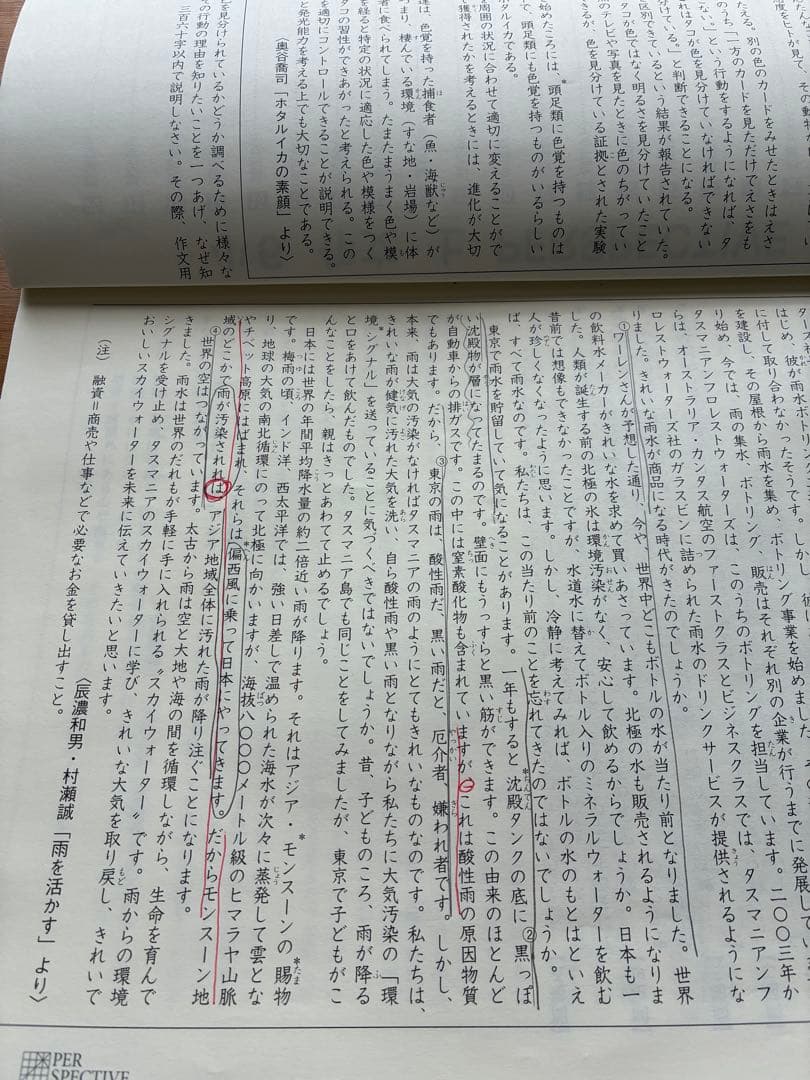 度をヒトが見て、その動物が
たえる。別の色のカードをみせたときはえさ
のうち「一方のカードを見ただけでえさをも
い。」という行動をするようになれば、タ
れはタコが色を見分けていなければできない
分けている。」と判断できることになる。
区別できているという結果が報告されていた。
タコが色ではなく明るさを見分けていたこと
のテレビや写真を見たときに色のちがってい
きるが、色を見分けている証拠とされた実験
始めたころには、*頭足類に色覚を持つものは
で、頭足類にも色覚を持つものがいるらしい
ホタルイカである。
周囲の状況に合わせて適切に変えることがで
獲得されたかを考えるときには、進化が大切
達は、色覚を持った捕食者(魚・海獣など)が
つまり、棲んでいる環境(すな地・岩場)に体
者に食べられてしまう。たまたまうまく色や模
を経ると特定の状況に適応した色や模様をつく
タコの習性ができあがったと考えられる。この
を適切にコントロールできることが説明できる。
と発光能力を考える上でも大切なことである。
〈奥谷喬司「ホタルイカの素顔」より〉
色を見分けられているかどうか調べるために様々な
その行動の理由を知りたいことを一つあげ、なぜ知
三百六十字以内で説明しなさい。その際、作文用
はじめ、彼が雨水ボトリング事業を始めました。
に付して取り合わなかったそうです。しかし、
を建設し、その屋根から雨水を集め、ボトリング事業を行うまでに発展して
り始め、今では、雨の集水、ボトリング、販売はそれぞれ別の企業が行
タスマニアンフロレストウォーターズは、このうちのボトリングを担当しています。二〇〇三年か
らは、オーストラリア カンタス航空のファーストクラスとビジネスクラスでは、タスマニアンフ
ロレストウォーターズ社のガラスビンに詰められた雨水のドリンクサービスが提供されるようにな
りました。きれいな雨水が商品になる時代がきたのでしょうか。
①ワーレンさんが予想した通り、今や、世界中どこもボトルの水が当たり前となりました。世界
の飲料水メーカーがきれいな水を求めて買いあさっています。北極の水も販売されるようになりま
した。人類が誕生する前の北極の氷は環境汚染がなく、安心して飲めるからでしょうか。日本も一
昔前では想像もできなかったことですが、水道水に替えてボトル入りのミネラルウォーターを飲む
人が珍しくなくなったように思います。しかし、冷静に考えてみれば、ボトルの水のもとはといえ
ば、すべて雨水なのです。私たちは、この当たり前のことを忘れてきたのではないでしょうか。
東京で雨水を貯留していて気になることがあります。一年もすると*沈殿タンクの底に②黒っぽ
い沈殿物が層になってたまるのです。壁面にもうっすらと黒い筋ができます。この由来のほとんど
が自動車からの排ガスです。この中には窒素酸化物も含まれていますが、これは酸性雨の原因物質
でもあります。だから、③東京の雨は、酸性雨だ、黒い雨だと、厄介者、嫌われ者です。しかし、
本来、雨は大気の汚染がなければタスマニアの雨のようにとてもきれいなものなのです。私たちは、
きれいな雨が健気に汚れた大気を洗い、自ら酸性雨や黒い雨となりながら私たちに大気汚染の「環
境*シグナル」を送っていることに気づくべきではないでしょうか。昔、子どものころ、雨が降る
と口をあけて飲んだものでした。タスマニア島でも同じことをしてみましたが、東京で子どもがこ
んなことをしたら、親はきっとあわてて止めるでしょう。
日本には世界の年間平均降水量の約二倍近い雨が降ります。それはアジア・*モンスーンの*賜物
です。梅雨の頃、インド洋、西太平洋では、強い日差しで温められた海水が次々に蒸発して雲とな
り、地球の大気の南北循環にのって北極に向かいますが、海抜八〇〇〇メートル級のヒマラヤ山脈
やチベット高原にはばまれ、それらは*偏西風に乗って日本にやってきます。だからモンスーン地
域のどこかで雨が汚染されれば、アジア地域全体に汚れた雨が降り注ぐことになります。
④世界の空はつながっています。太古から雨は空と大地や海の間を循環しながら、生命を育んで
きました。雨水は世界のだれもが手軽に手に入れられる〝スカイウォーター〟です。雨からの環境
シグナルを受け止め、タスマニアのスカイウォーターに学び、きれいな大気を取り戻し、きれいで
おいしいスカイウォーターを未来に伝えていきたいと思います。
〈辰濃和男・村瀬誠「雨を活かす」より〉
(注) 融資=商売や仕事などで必要なお金を貸し出すこと。
PER
SPECTIVE